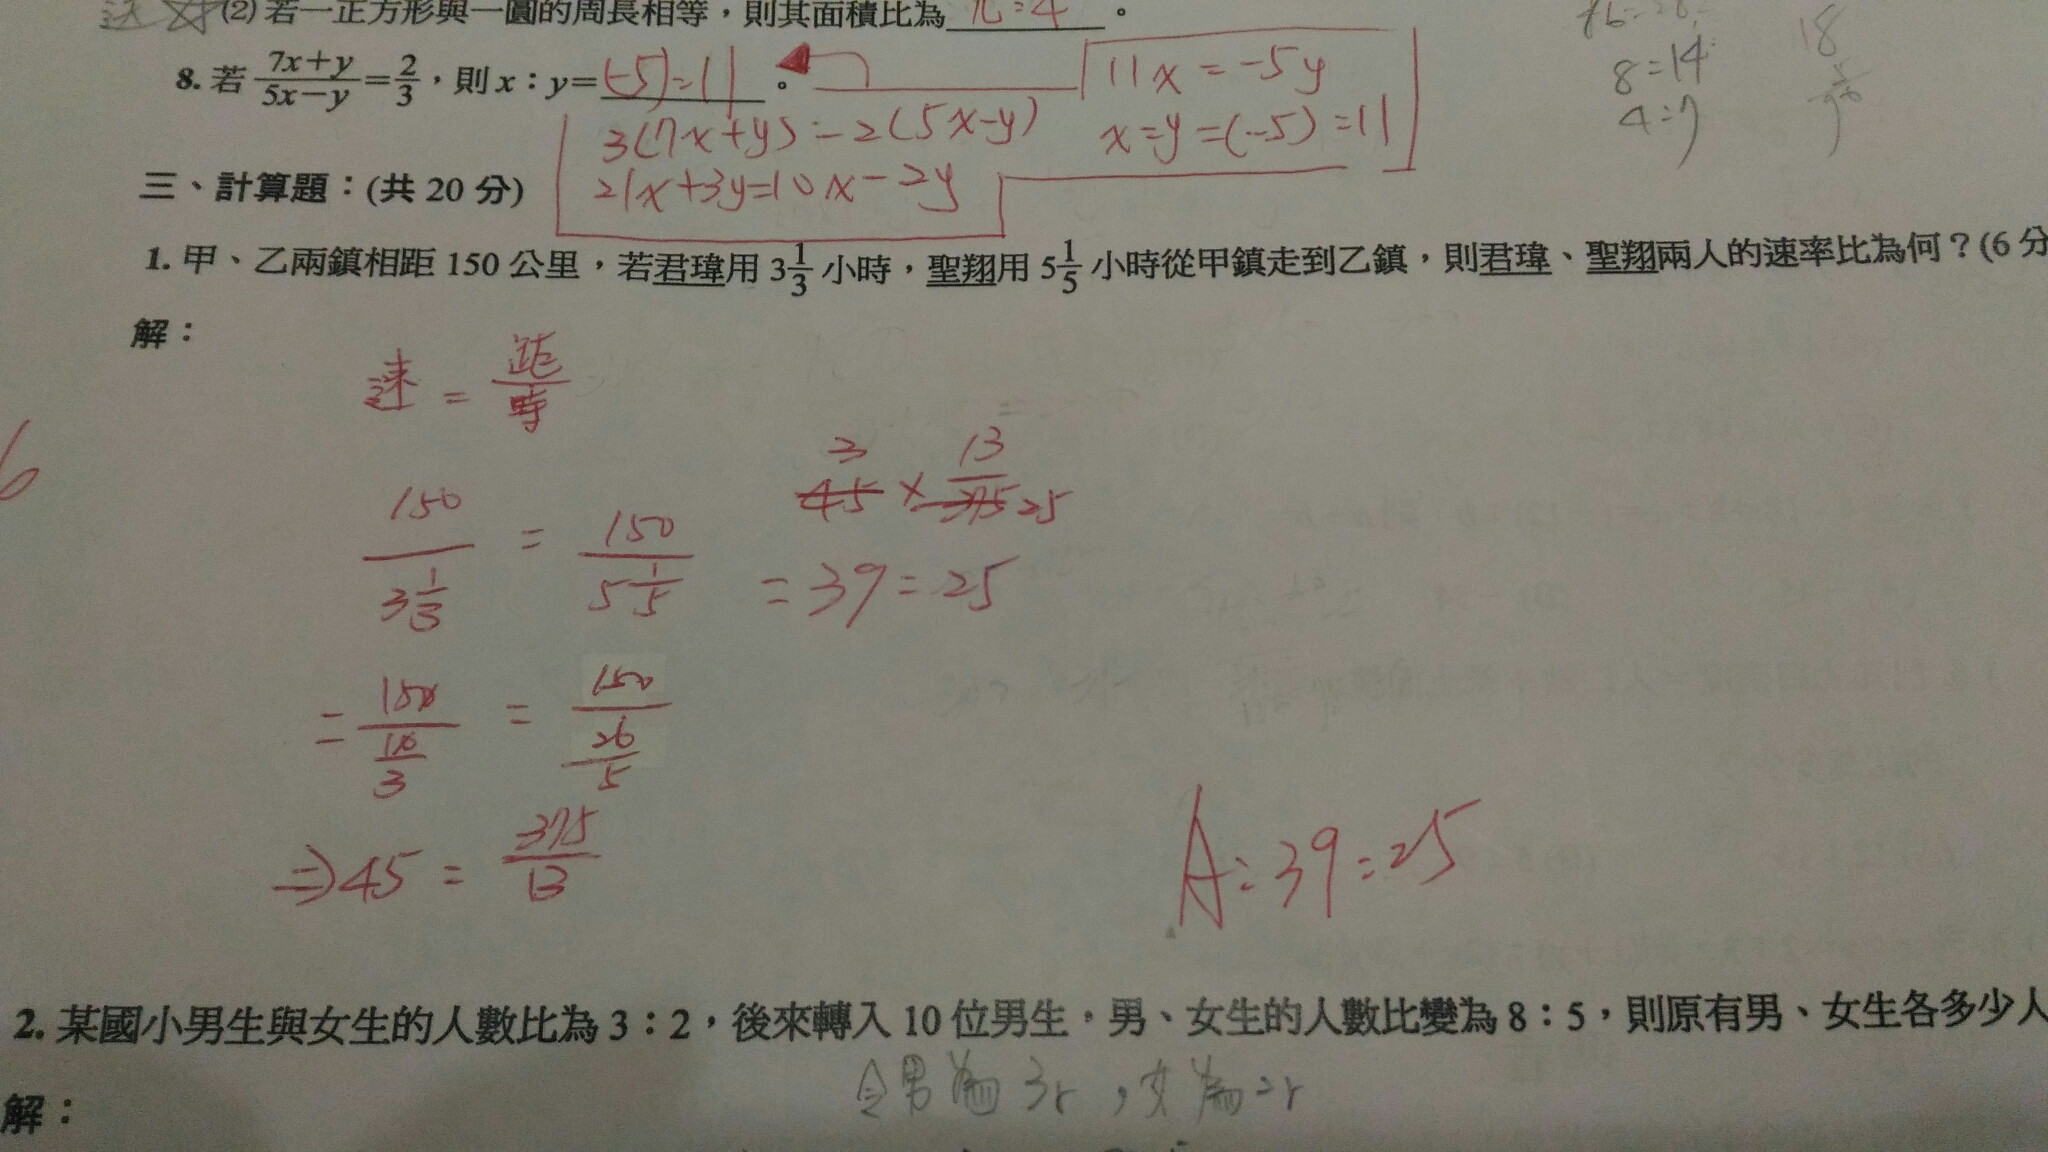 (2) 若一正方形與一圓的周長相等，則其面積比為 π:4 。
8. 若 \frac{7x+y}{5x-y}=\frac{2}{3}，則 x：y= (-5):11 。
11x = -5y
x:y = (-5):11
3(7x+y) = 2(5x-y)
21x+3y=10x-2y
8:14
4:7
18
三、計算題：(共 20 分)
1. 甲、乙兩鎮相距 150 公里，若君瑋用 3\frac{1}{3} 小時，聖翔用 5\frac{1}{5} 小時從甲鎮走到乙鎮，則君瑋、聖翔兩人的速率比為何？(6 分
解：
速 = \frac{距}{時}
6
\frac{150}{3\frac{1}{3}} : \frac{150}{5\frac{1}{5}}
= \frac{150}{\frac{10}{3}} : \frac{150}{\frac{26}{5}}
⇒ 45 : \frac{375}{13}
3 13
45 × 375 25
= 39:25
A: 39:25
2. 某國小男生與女生的人數比為 3：2，後來轉入 10 位男生，男、女生的人數比變為 8：5，則原有男、女生各多少人
解：
令男為 3r，女為 2r